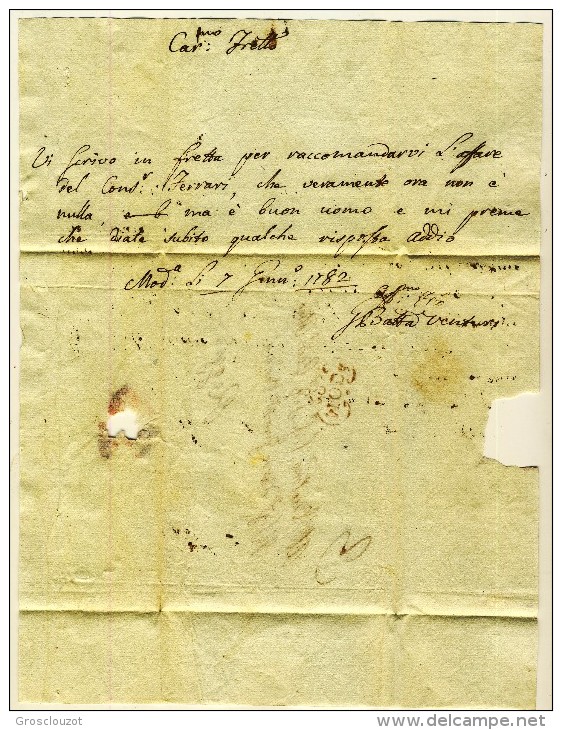 Car.mo Frello
Vi scrivo in fretta per raccomandarvi L'affare
del Cons.r Ferrari, che veramente ora non è
nulla, ma è buon uomo e mi preme
che diate subito qualche risposta addio
Mod.a Li 7 Genn.o 1782
Aff.mo
GBatta Venturi
MOD
Grosclouzot
www.delcampe.net